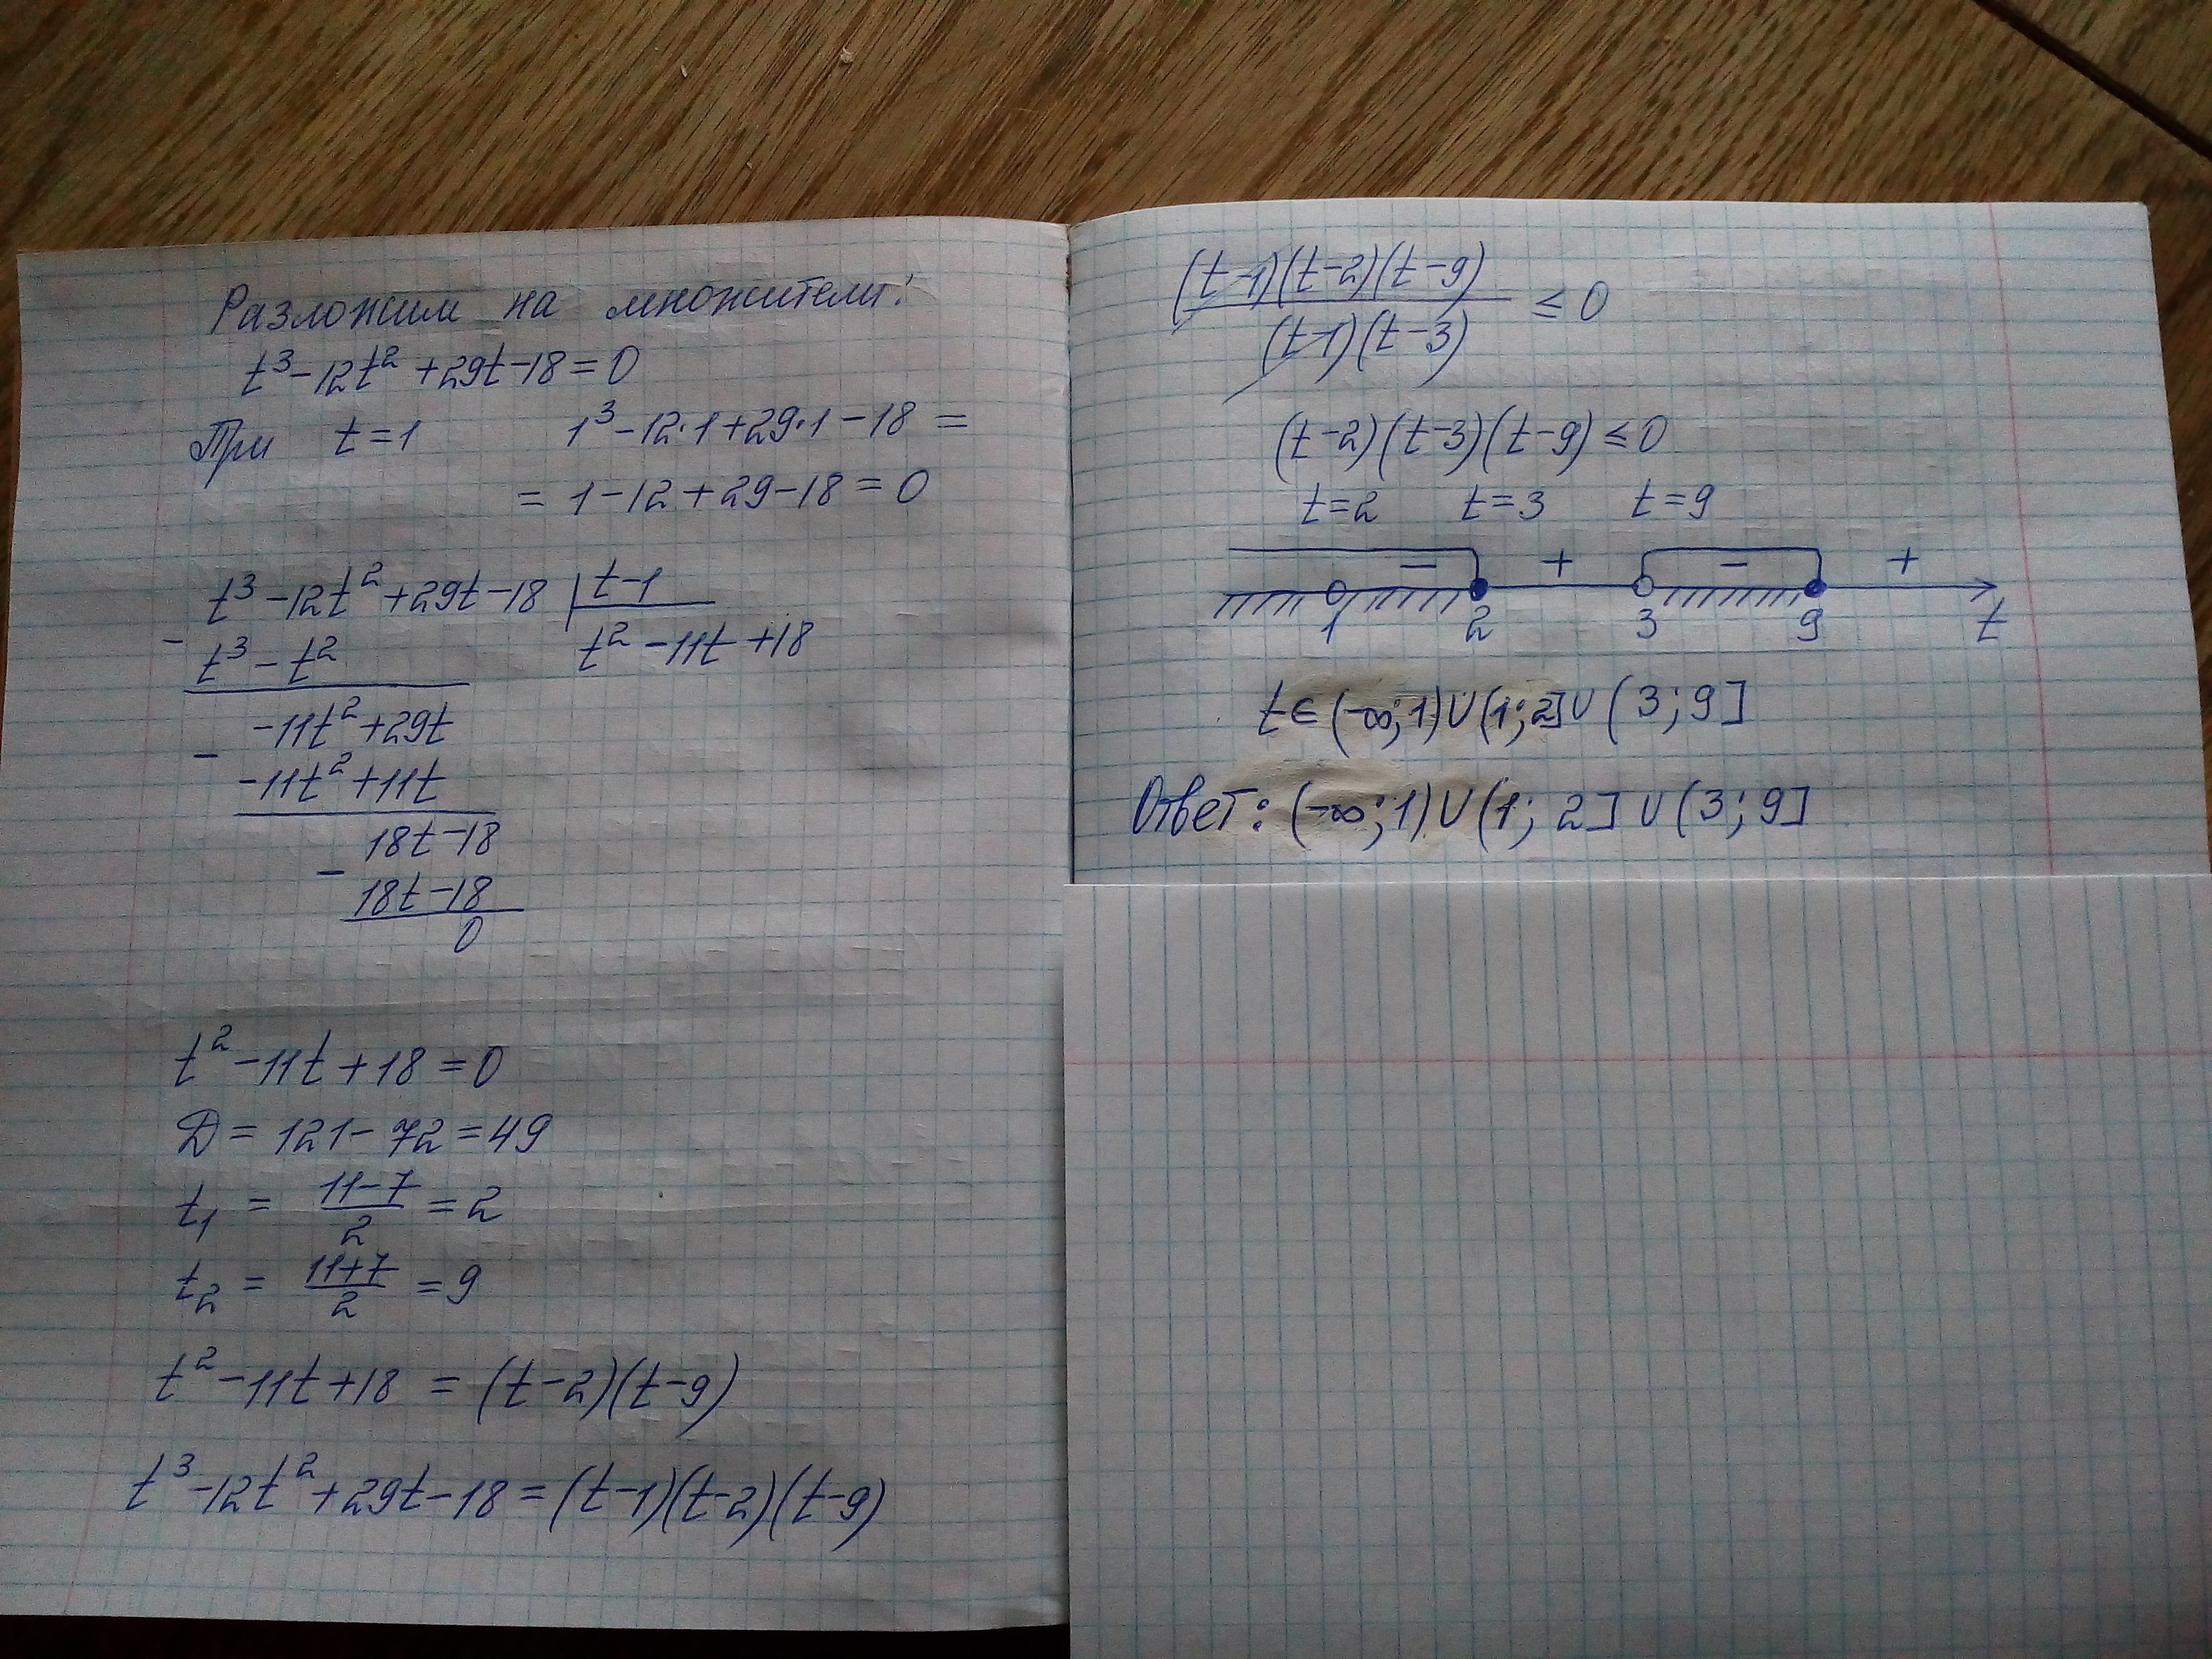 Разложим на множители:
t³-12t²+29t-18=0
При t=1 1³-12·1+29·1-18=
=1-12+29-18=0
t³-12t²+29t-18 | t-1
- t³-t² t²-11t+18
-11t²+29t
- -11t²+11t
18t-18
- 18t-18
0
t²-11t+18=0
D=121-72=49
t₁ = (11-7)/2 = 2
t₂ = (11+7)/2 = 9
t²-11t+18 = (t-2)(t-9)
t³-12t²+29t-18=(t-1)(t-2)(t-9)
(t-1)(t-2)(t-9)
≤0
(t-1)(t-3)
(t-2)(t-3)(t-9)≤0
t=2 t=3 t=9
- + - +
1 2 3 9 t
t∈(-∞;1)∪(1;2]∪(3;9]
Ответ: (-∞;1)∪(1;2]∪(3;9]